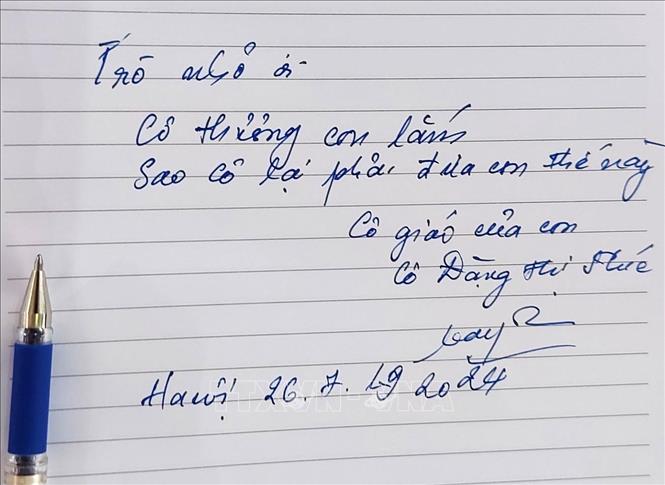 Trò nhỏ ơi
Cô thương con lắm
Sao cô lại phải đưa con thế này
Cô giáo của con
Cô Đặng Thị Phúc
Hanội 26.7.19 2024
TTXVN - VNA